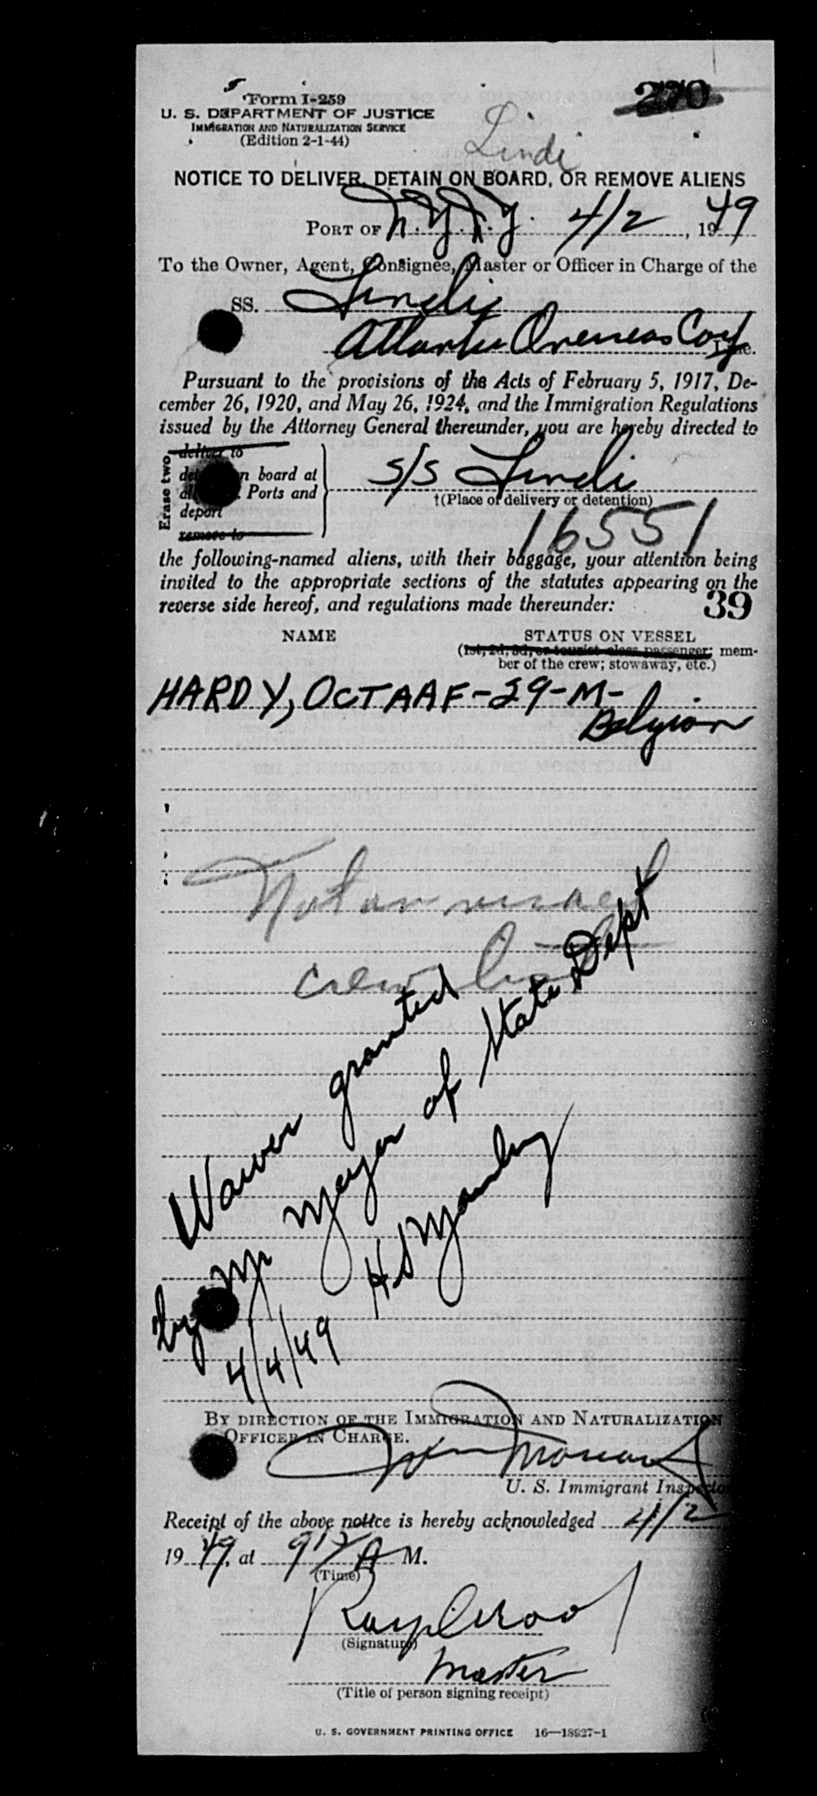 Form I-259
270
U. S. DEPARTMENT OF JUSTICE
IMMIGRATION AND NATURALIZATION SERVICE
(Edition 2-1-44)
Lindi
NOTICE TO DELIVER, DETAIN ON BOARD, OR REMOVE ALIENS
PORT OF N.Y.N.Y. 4/2, 1949
To the Owner, Agent, Consignee, Master or Officer in Charge of the
SS. Lindi
Atlantic Overseas Corp Line.
Pursuant to the provisions of the Acts of February 5, 1917, De-
cember 26, 1920, and May 26, 1924, and the Immigration Regulations
issued by the Attorney General thereunder, you are hereby directed to
Erase two.
deliver to
n board at
Ports and
deport
remove to
S/S Lindi
†(Place of delivery or detention)
16551
the following-named aliens, with their baggage, your attention being
invited to the appropriate sections of the statutes appearing on the
reverse side hereof, and regulations made thereunder:
39
NAME STATUS ON VESSEL
(1st, 2d, 3d, or tourist class passenger; mem-
ber of the crew; stowaway, etc.)
HARDY, OCTAAF-29-M-
Belgian
Not on visaed
crew list
Waiver granted
by Mr Meyer of State Dept
4/4/49 H S
BY DIRECTION OF THE IMMIGRATION AND NATURALIZATION
OFFICER IN CHARGE.
U. S. Immigrant Inspector
Receipt of the above notice is hereby acknowledged 4/2
1949, at 9 1/2 A M.
(Time)
(Signature)
Master
(Title of person signing receipt)
U. S. GOVERNMENT PRINTING OFFICE 16—18927-1